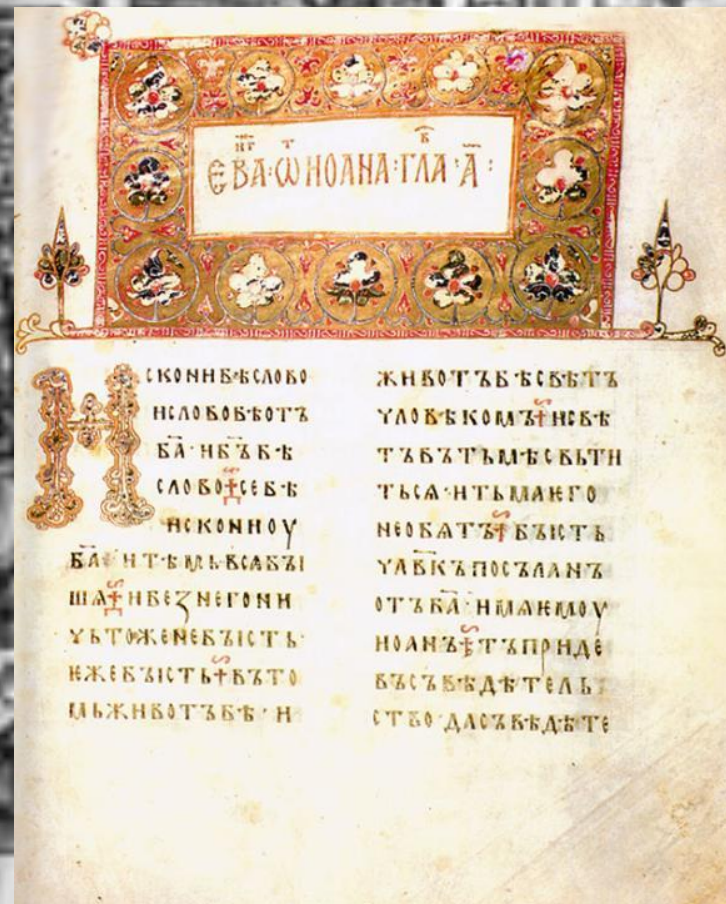 ЕВА·ѠИОАНА·ГЛА·А҃:
ИСКОНИБѢСЛОВО
ИСЛОВОБѢОТЪ
БА҃·ИБ҃ЪБѢ
СЛОВО☩СЕБѢ
ИСКОНИОУ
БА҃·ИТѢМЬВСѦБЪІ
ШѦ☩ИБЕЗНЕГОНИ
ЧЬТОЖЕНЕБЪІСТЬ·
ѤЖЕБЪІСТЬ☩ВЪТО
МЬЖИВОТЪБѢ·И
ЖИВОТЪБѢСВѢТЪ
ЧЛОВѢКОМЪ☩ИСВѢ
ТЪВЪТЬМѢСВЬТИ
ТЬСѦ·ИТЬМАѤГО
НЕОБѦТЪ☩БЪІСТЬ
ЧЛВ҃КЪПОСЪЛАНЪ
ОТЪБА҃·ИМѦѤМОУ
ИОАНЪ☩ТЪПРИДЕ
ВЪСЪВѢДѢТЕЛЬ
СТВО·ДАСЪВѢДѢТЕ